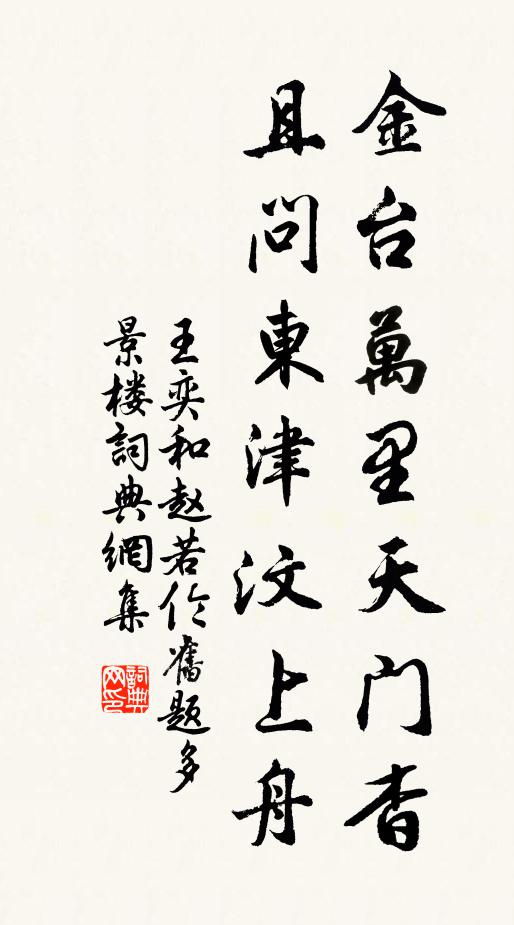 金台萬里天门杳
且問東津汶上舟
王奕和赵若伦舊题多
景楼詞典網集
詞典
网印